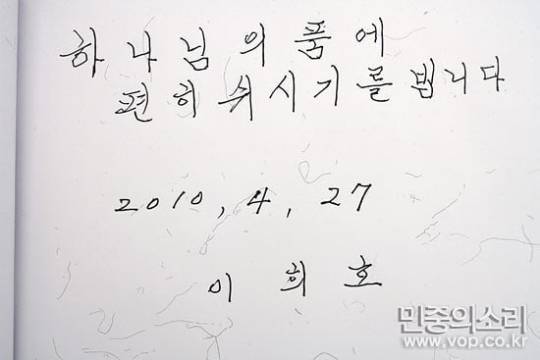 하나님의 품에
편히 쉬시기를 빕니다
2010, 4, 27
이 희 호
민중의소리
www.vop.co.kr